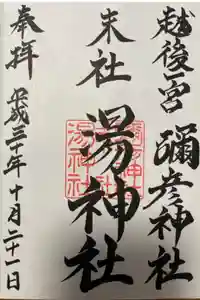 越後一宮 彌彦神社
末社 湯神社
奉拝
平成三十年十月二十一日
湯神社